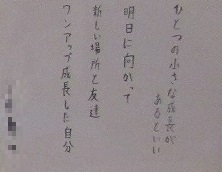 ひとつの小さな成長が
あるといい
明日に向かって
新しい場所と友達
ワンアップ成長した自分